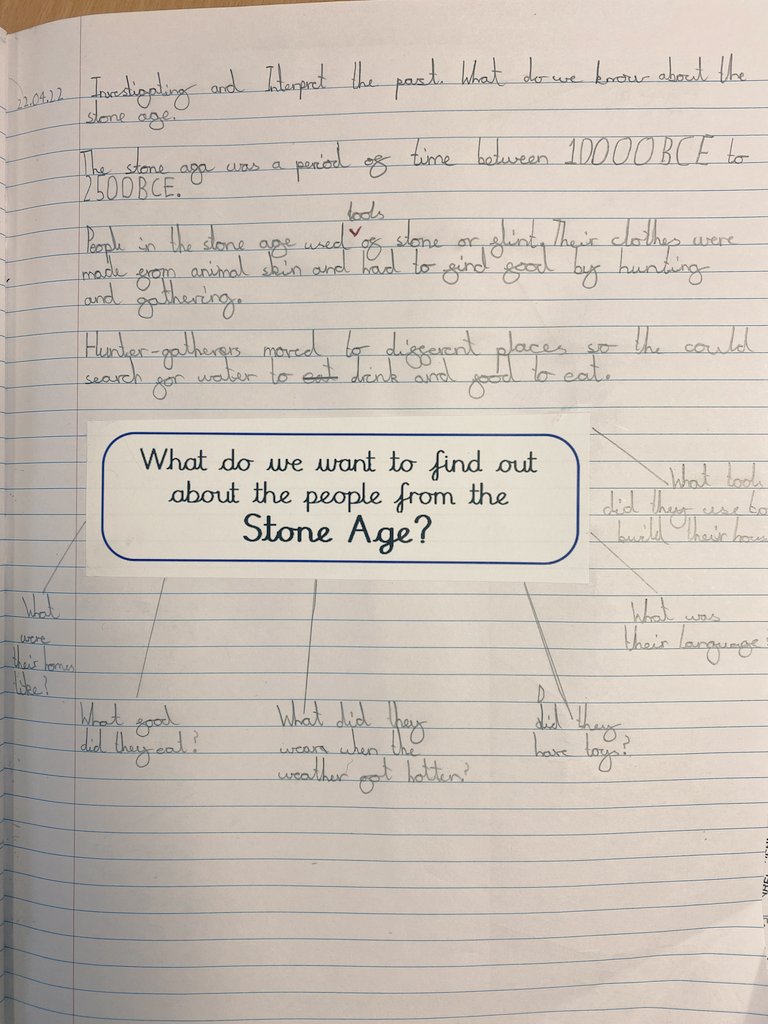 22.04.22
Investigating and Interpret the past. What do we know about the
stone age.
The stone aga was a period of time between 10000BCE to
2500BCE.
tools
People in the stone age used of stone or flint. Their clothes were
made from animal skin and had to find food by hunting
and gathering.
Hunter-gatherers moved to different places so the could
search for water to eat drink and food to eat.
What do we want to find out
about the people from the
Stone Age?
What tools
did they use to
build their hous
What was
their language?
What
were
their homes
like?
What food
did they eat?
What did they
wear when the
weather got hotter?
Did they
have toys?